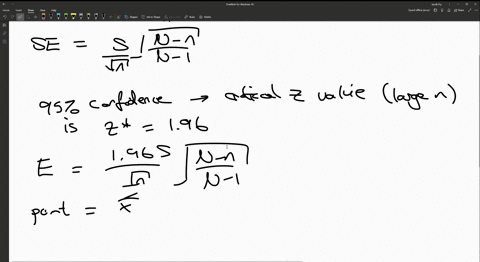 SE = S/√n √(N-n)/(N-1)
95% confidence → critical z value (large n)
is z* = 1.96
E = 1.96S/√n √(N-n)/(N-1)
point = x̄